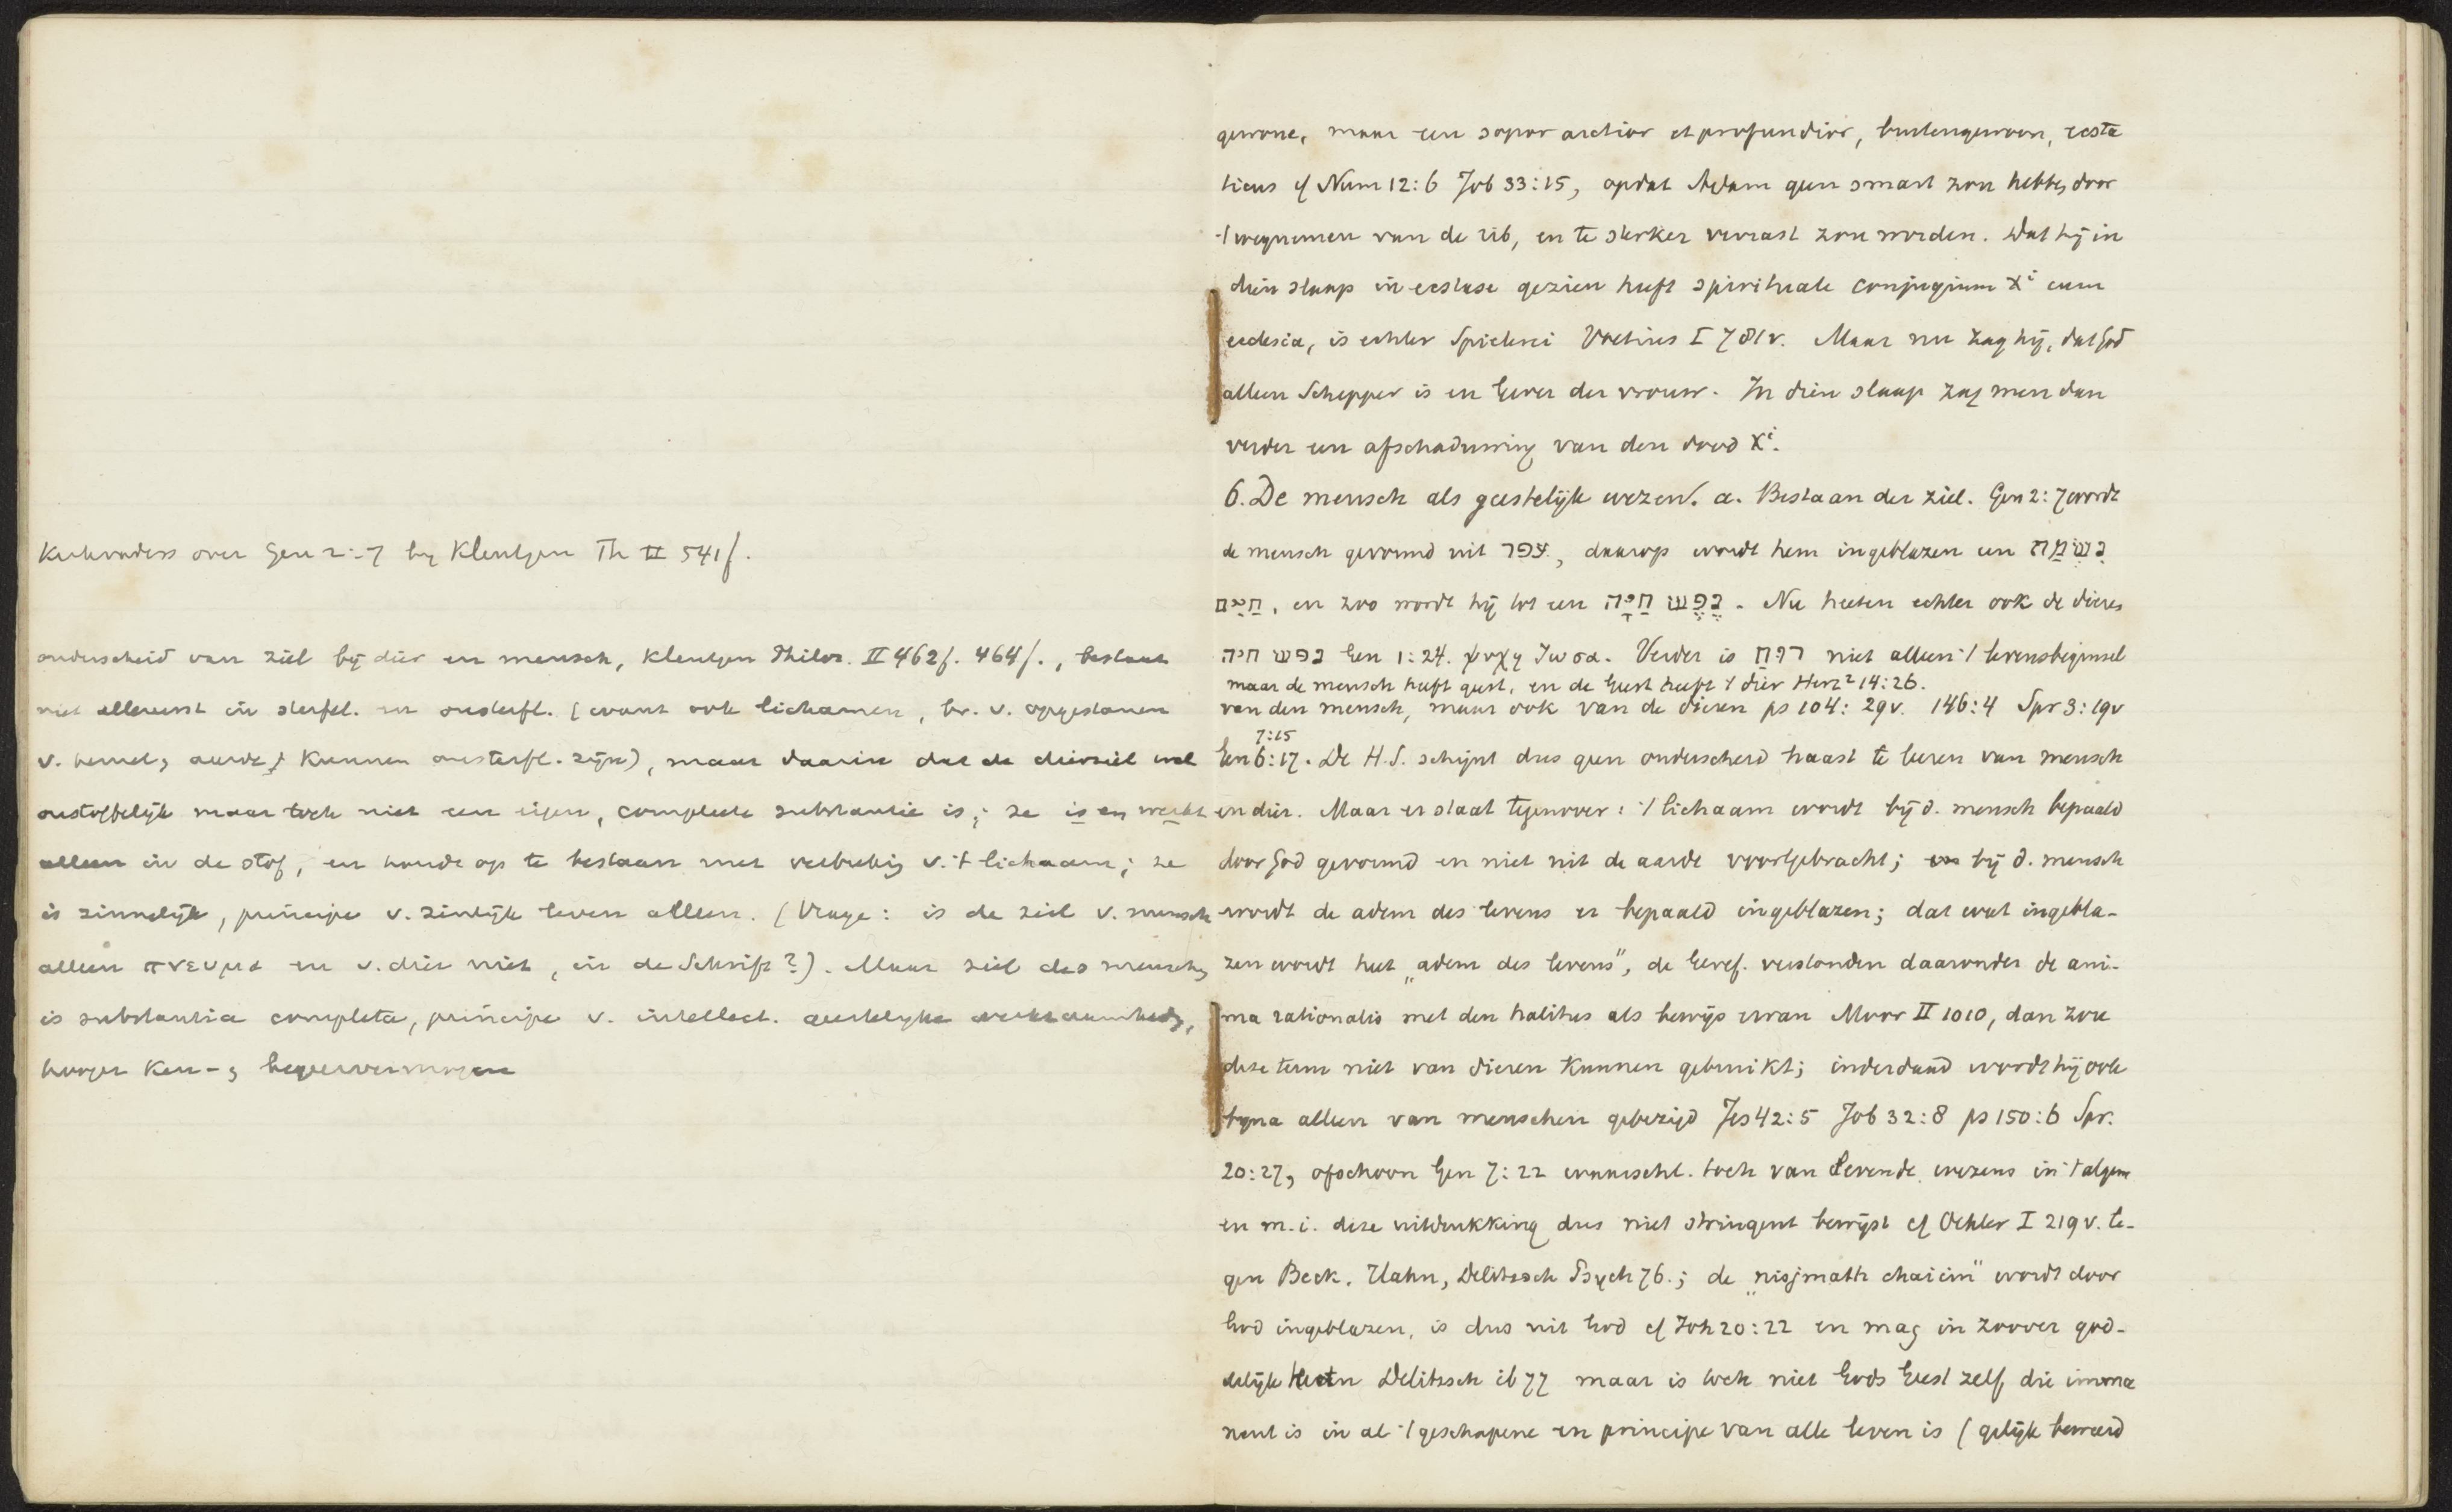 Kerkvaders over Gen 2:7 by Kleutgen Th II 541f.
onderscheid van ziel bij dier en mensch, Kleutgen Philos. II 462f. 464f., bestaat
niet allereerst in sterfel. en onsterfl. (want ook lichamen, bv. v. opgestanen
v. hemel, aarde, kunnen onsterfl. zijn), maar daarin dat de dierziel wel
onstoffelijk maar toch niet een eigen, complete substantie is; ze is en werkt
alleen in de stof, en houdt op te bestaan met verbreking v. 't lichaam; ze
is zinnelijk, principe v. zinlijk leven alleen. (Vrage: is de ziel v. mensch
alleen πνευμα en v. dier niet, in de Schrift?). Maar ziel des menschen
is substantia completa, principe v. intellect. geestelyke werkzaamheden,
hooger ken- en begeervermogen
gewone, maar een sopor arctior et profundior, buitengewoon, ecsta
ticus cf Num 12:6 Job 33:15, opdat Adam geen smart zou hebben door
't wegnemen van de rib, en te sterker verrast zou worden. Wat hij in
dien slaap in ecstase gezien heeft spirituale conjugium Xi cum
ecclesia, is echter Spielerei Voetius I 781v. Maar nu zag hij, dat God
alleen Schepper is en Gever der vrouw. In dien slaap zag men dan
verder een afschaduwing van den dood Xi.
6. De mensch als geestelijk wezen. a. Bestaan der ziel. Gen 2:7 wordt
de mensch gevormd uit עפר, daarop wordt hem ingeblazen een נִשְׁמַת
חַיִּים, en zoo wordt hij tot een נֶפֶשׁ חַיָּה. Nu heeten echter ook de dieren
נפש חיה Gen 1:24. ψυχη ζωσα. Verder is רוּחַ niet alleen 't levensbeginsel
maar de mensch heeft geest, en de Geest heeft 't dier Herz² 14:26.
van den mensch, maar ook van de dieren ps 104:29v. 146:4 Spr 3:19v
7:15
Gen 6:17. De H.S. schijnt dus geen onderscheid haast te leeren van mensch
en dier. Maar er staat tegenover: 't lichaam wordt bij d. mensch bepaald
door God gevormd en niet uit de aarde voortgebracht; bij d. mensch
wordt de adem des levens er bepaald ingeblazen; dat wat ingebla-
zen wordt heet „adem des levens", de Geref. verstonden daaronder de ani-
ma rationalis met den halitus als bewijs ervan Moor II 1010, dan zou
deze term niet van dieren kunnen gebruikt; inderdaad wordt hij ook
byna alleen van menschen gebezigd Jes 42:5 Job 32:8 ps 150:6 Spr.
20:27, ofschoon Gen 7:22 waarschl. toch van levende wezens in 't algem
en m.i. deze uitdrukking dus niet stringent bewijst cf Oehler I 219v. te-
gen Beck, Hahn, Delitzsch Psych 76.; de „nisjmath chaiim" wordt door
God ingeblazen, is dus uit God cf Joh 20:22 en mag in zoover god-
delijk heeten Delitzsch ib 77 maar is toch niet Gods Geest zelf, die imma
nent is in al 't geschapene en principe van alle leven is (gelijk beweerd